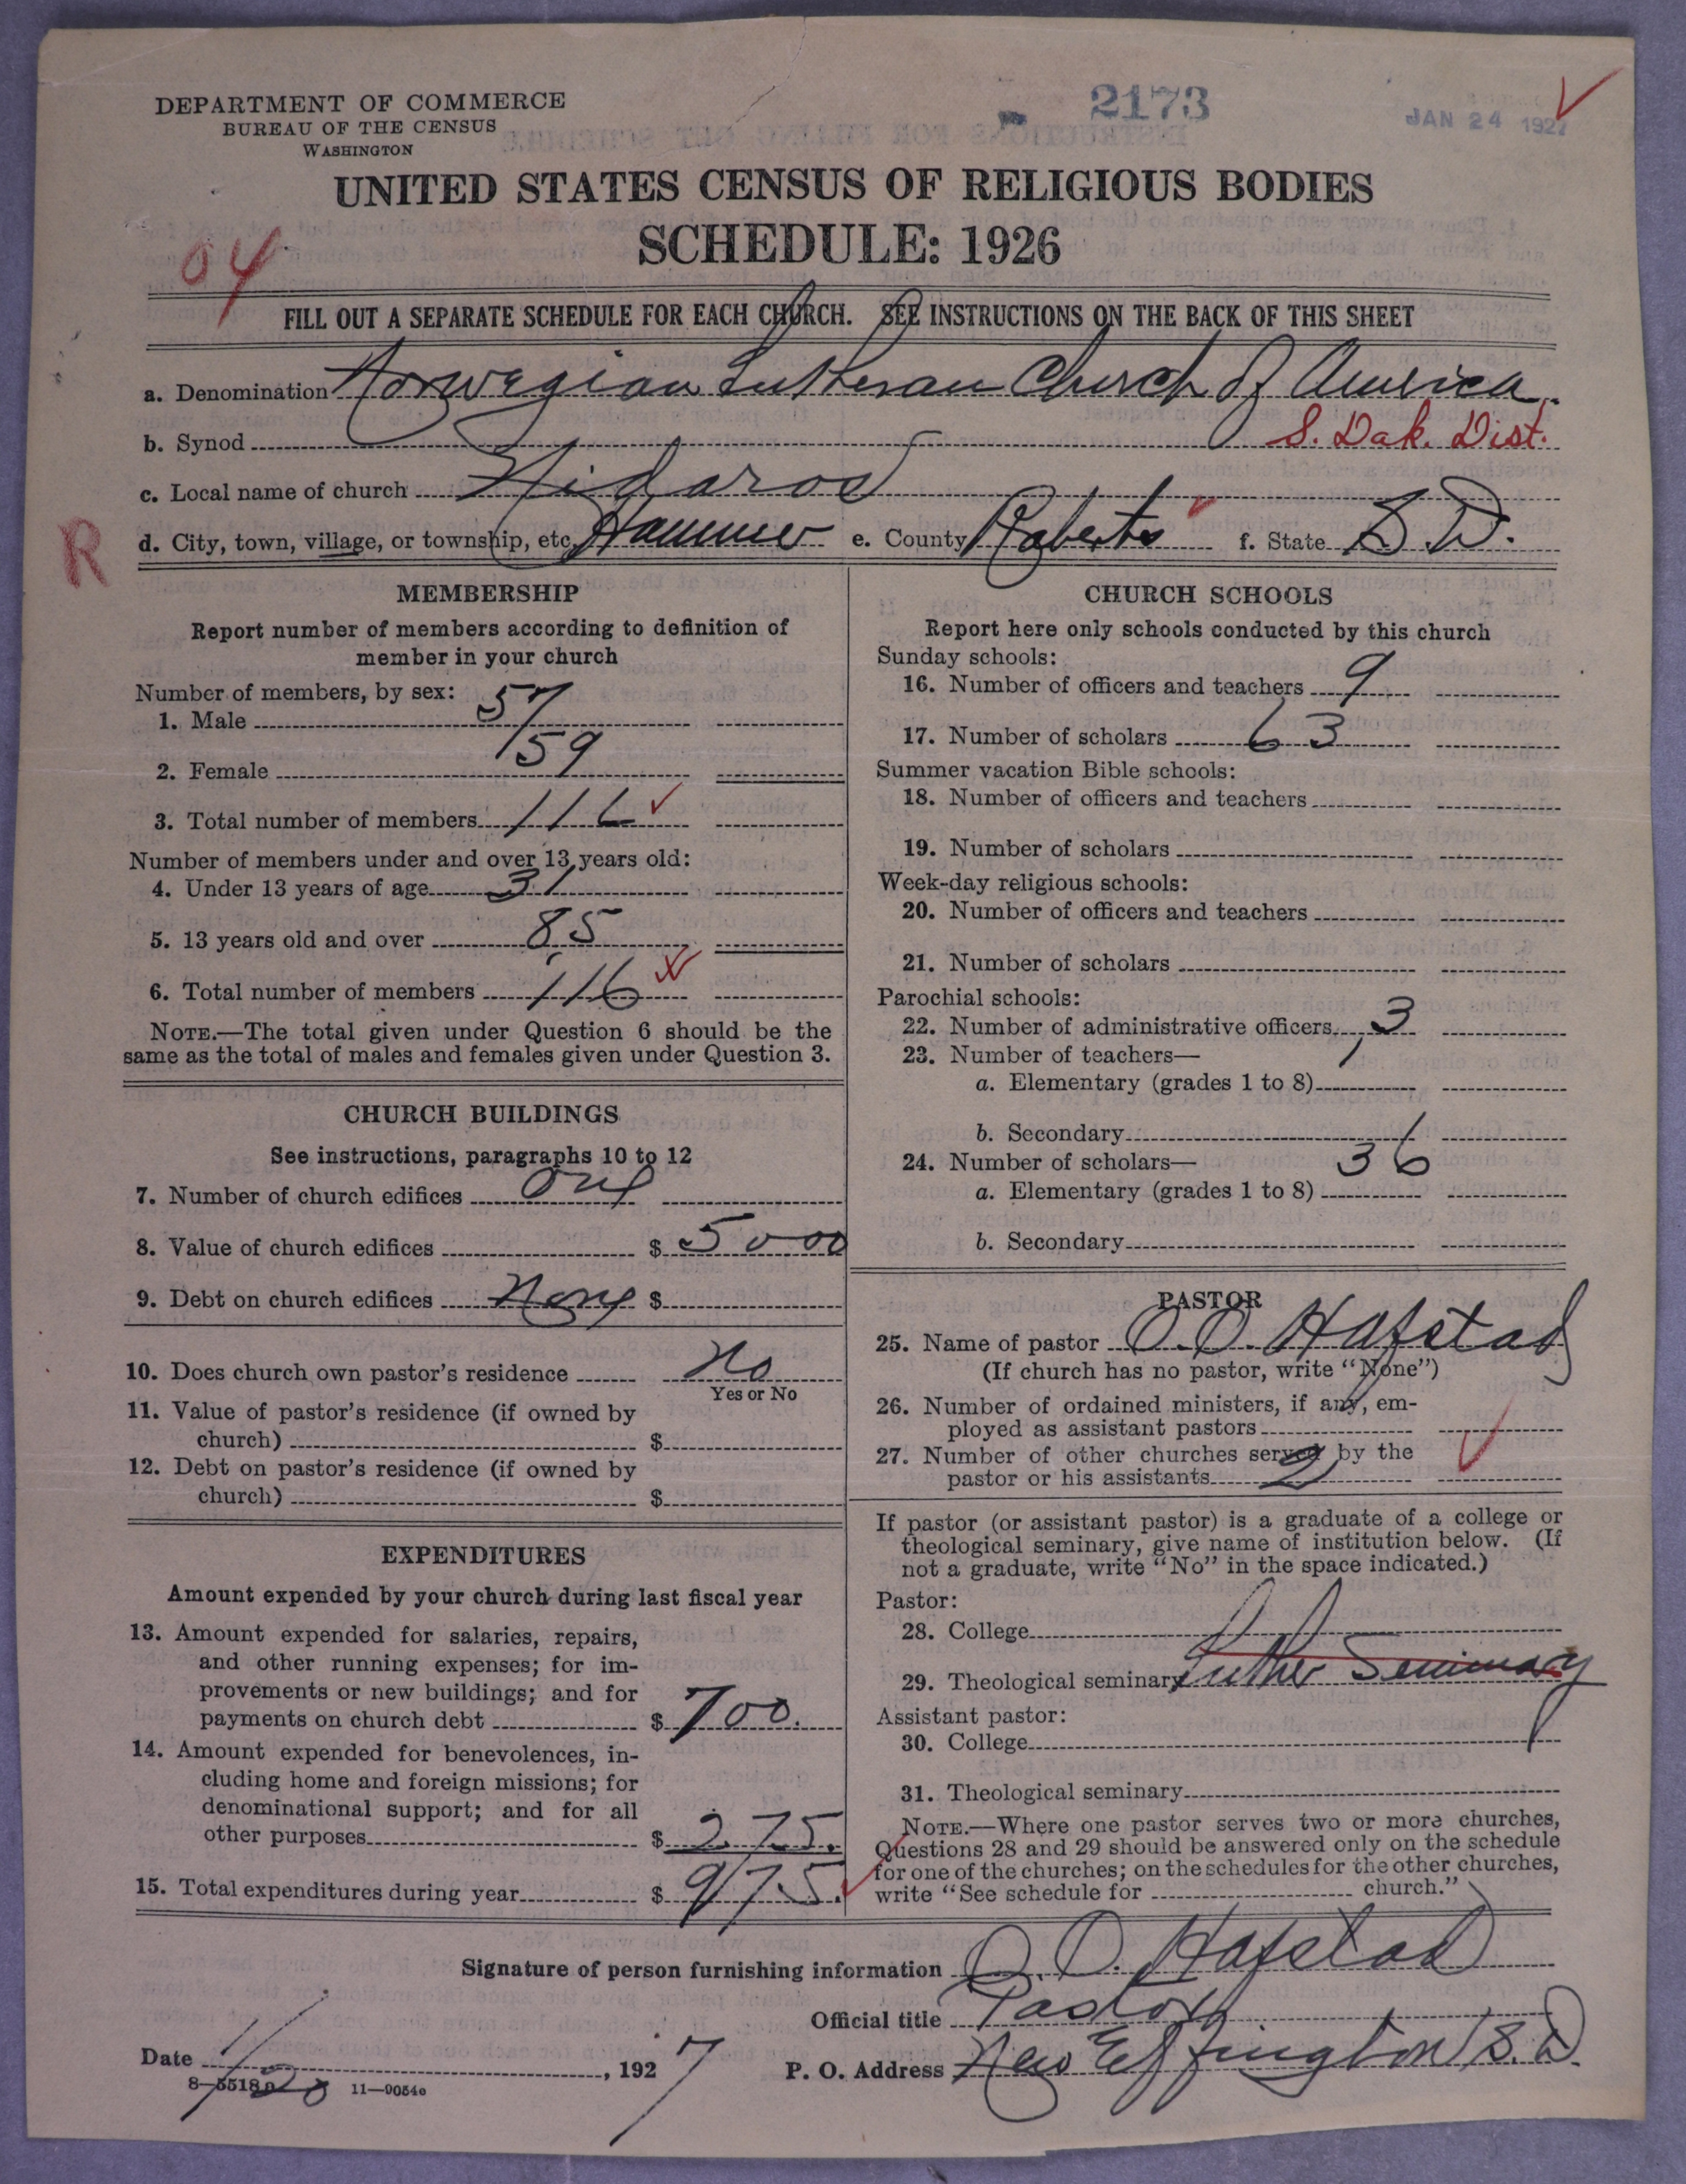 DEPARTMENT OF COMMERCE
BUREAU OF THE CENSUS
WASHINGTON
2173
JAN 24 1927
UNITED STATES CENSUS OF RELIGIOUS BODIES
SCHEDULE: 1926
04
FILL OUT A SEPARATE SCHEDULE FOR EACH CHURCH. SEE INSTRUCTIONS ON THE BACK OF THIS SHEET
a. Denomination Norwegian Lutheran Church of America
b. Synod S. Dak. Dist.
c. Local name of church Nidaros
R
d. City, town, village, or township, etc. Hammer e. County Roberts f. State S. D.
MEMBERSHIP
Report number of members according to definition of
member in your church
Number of members, by sex:
1. Male 57
2. Female 59
3. Total number of members 116
Number of members under and over 13 years old:
4. Under 13 years of age 31
5. 13 years old and over 85
6. Total number of members 116
NOTE.—The total given under Question 6 should be the
same as the total of males and females given under Question 3.
CHURCH BUILDINGS
See instructions, paragraphs 10 to 12
7. Number of church edifices One
8. Value of church edifices $ 5000
9. Debt on church edifices None $
10. Does church own pastor's residence No
Yes or No
11. Value of pastor's residence (if owned by
church) $
12. Debt on pastor's residence (if owned by
church) $
EXPENDITURES
Amount expended by your church during last fiscal year
13. Amount expended for salaries, repairs,
and other running expenses; for im-
provements or new buildings; and for
payments on church debt $ 700.
14. Amount expended for benevolences, in-
cluding home and foreign missions; for
denominational support; and for all
other purposes $ 275.
15. Total expenditures during year $ 975.
CHURCH SCHOOLS
Report here only schools conducted by this church
Sunday schools:
16. Number of officers and teachers 9
17. Number of scholars 63
Summer vacation Bible schools:
18. Number of officers and teachers
19. Number of scholars
Week-day religious schools:
20. Number of officers and teachers
21. Number of scholars
Parochial schools:
22. Number of administrative officers 3
23. Number of teachers—
a. Elementary (grades 1 to 8)
b. Secondary
24. Number of scholars— 36
a. Elementary (grades 1 to 8)
b. Secondary
PASTOR
25. Name of pastor O. O. Hafstad
(If church has no pastor, write "None")
26. Number of ordained ministers, if any, em-
ployed as assistant pastors
27. Number of other churches served by the
pastor or his assistants 2
If pastor (or assistant pastor) is a graduate of a college or
theological seminary, give name of institution below. (If
not a graduate, write "No" in the space indicated.)
Pastor:
28. College
29. Theological seminary Luther Seminary
Assistant pastor:
30. College
31. Theological seminary
NOTE.—Where one pastor serves two or more churches,
Questions 28 and 29 should be answered only on the schedule
for one of the churches; on the schedules for the other churches,
write "See schedule for church."
Signature of person furnishing information O. O. Hafstad
Official title Pastor
Date 1/20, 1927 P. O. Address New Effington S. D.
8-5518a 11-9054e